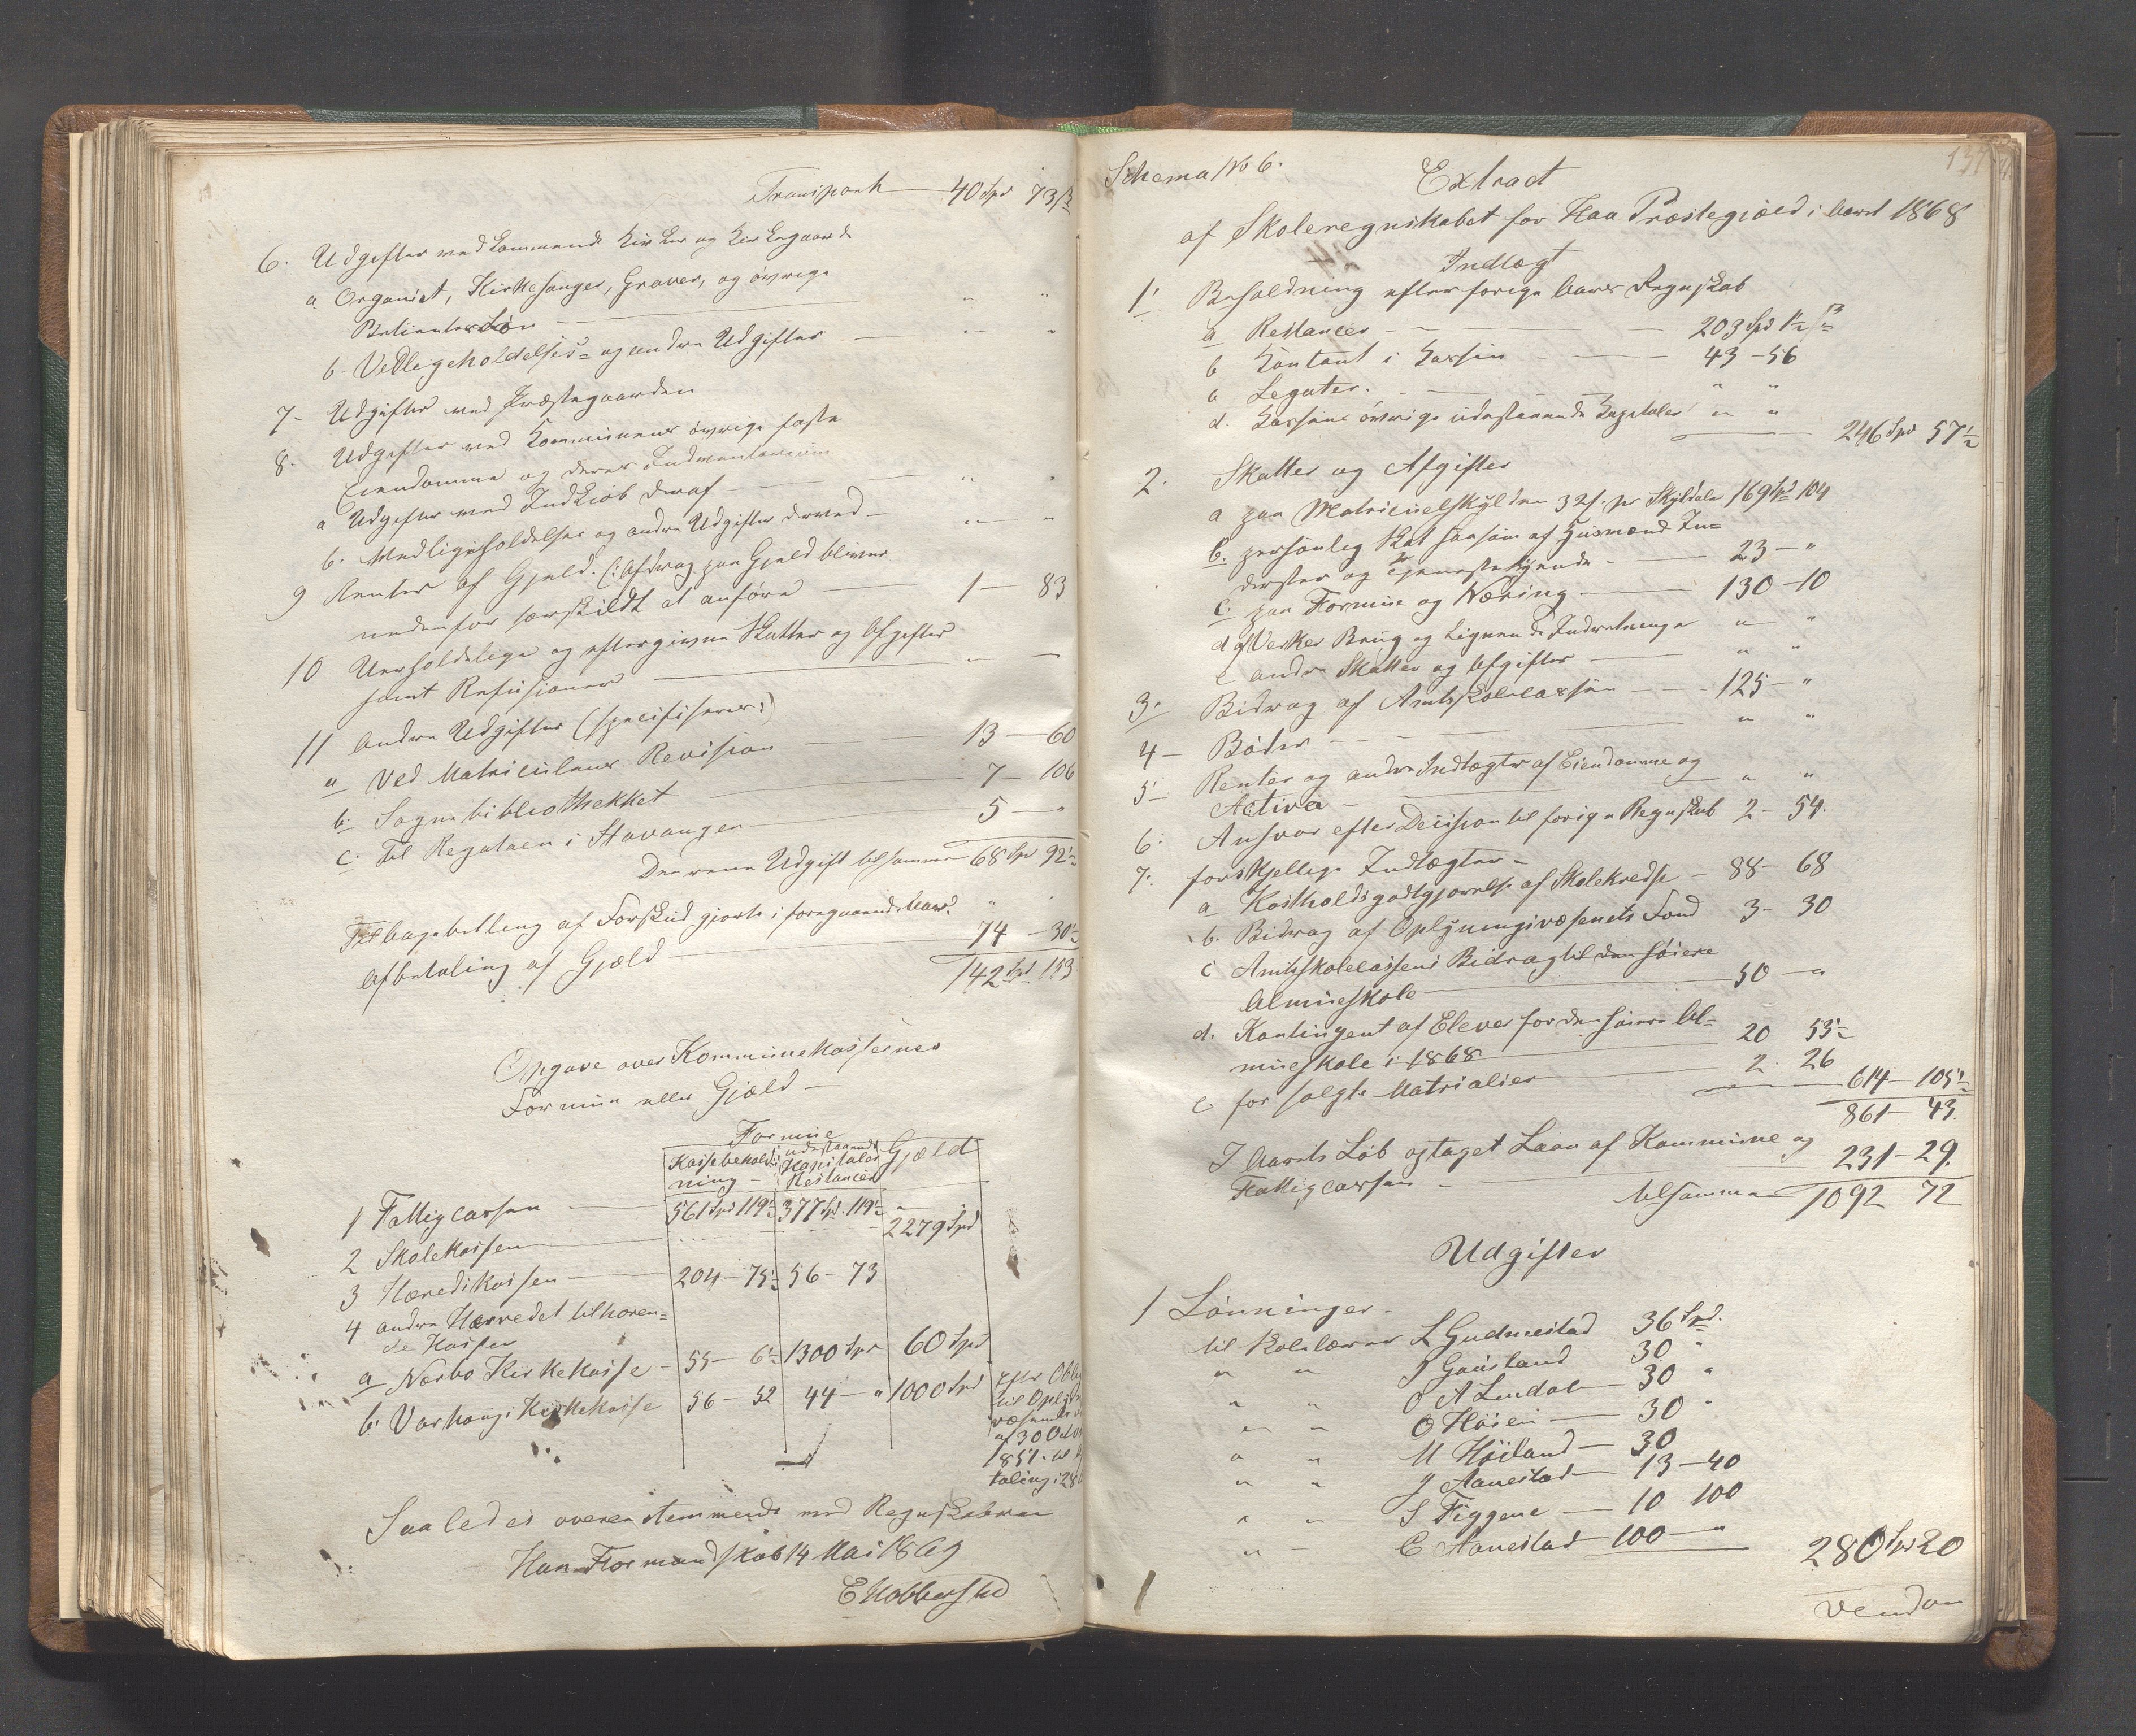 Transport 40 Spd 73½
6. Udgifter vedkommende Kirker og Kirkegaarde
a Organist, Kirkesanger, Graver, og øvrige
Betienters Løn — " "
b. Vedligeholdelses- og andre Udgifter — " "
7- Udgifter ved Præstegaarden
8. Udgifter ved Kommunens øvrige faste
Eiendomme og deres Indventarium
a Udgifter ved Indkiøb deraf — " "
b. Vedligeholdelse og andre Udgifter derved — " "
9 Renter af Gjeld. (: Afdrag paa Gjeld bliver
nedenfor særskildt at anføre — 1 — 83
10 Uerholdelige og eftergivne Skatter og Afgifter
samt Refusioner — " —
11 Andre Udgifter (specifiseres:)
a Ved Matriculens Revision — 13 — 60
b. Sognebibliothekket — 7 — 106
c. Til Regataen i Stavanger — 5 — "
Den rene Udgift tilsammen 68 Spd 92½
Tilbagebetaling af Forskud gjorte i foregaaende Aar. " "
Afbetaling af Gjæld — 74 — 30½
142 Spd 113
Opgave over Kommunekassernes
Formue eller Gjæld —
Formue
Kassebehold- udestaaende Gjæld
ning — Kapitaler
Restancer
1 Fattigcassen — 561 Spd 119½ 377 Spd. 119½ "
2 Skolekassen — 2279 Spd
3 Herredskassen — 204 — 75½ 56 - 73
4 andre Herredet tilhøren-
de Kasser
a Nærbø Kirkekasse - 55 — 6½ 1300 Spd 60 Spd
b. Varhougs Kirkekasse 56 — 52 44 — " 1000 Spd
til Oplys
væsenets
af 30 Oct
1851.
taling i 28
Saaledes overensstemmende med Regnskaberne
Haa Formandskab 14 Mai 1869
Schema No 6.
Extract
af Skoleregnskabet for Haa Præstegjæld i Aaret 1868
Indtægt
1. Beholdning efter forige Aars Regnskab
a Restancer — 203 Spd 1½ ß
b Kontant i Kassen — 43 — 56
c Legater. — " "
d. Kassens øvrige udestaaende Kapitaler " "
246 Spd 57½
2. Skatter og Afgifter
a paa Matriculskylden 32 ß. pr Skyldalr 169 Spd 104
b. personlig Skat saasom af Husmænd In-
derster og Tjenestetyende — 23 — "
c. paa Formue og Næring — 130 — 10
d af Verker Brug og lignende Indretninger " "
e andre Skatter og Afgifter — " "
3. Bidrag af Amtsskolecassen — 125 — "
4 — Bøder — " "
5 — Renter og andre Indtægter af Eiendomme og
Activa — " "
6. Ansvar efter Decision til forige Regnskab 2 — 54.
7. forskjellige Indtægter —
a Kostholdsgodtgjørelse af Skolekredse — 88 — 68
b. Bidrag af Oplysningsvæsenets Fond 3 — 30
c Amtsskolecassens Bidrag til den høiere
Almueskole — 50 — "
d. Kontingent af Elever for den høiere Al-
mueskole i 1868 — 20 55½
e for solgte Matrialier 2. 26
614 — 105½
861 — 43.
I Aarets Løb optaget Laan af Kommune og
Fattigcassen — 231 — 29.
tilsammen 1092 72
Udgifter
1 Lønninger.
til Skolelærer L Gudmestad 36 Spd.
" " J Gausland 30 "
" " O A Lendal — 30 "
" " O Høien — 30 "
" " M Høiland — 30
" " J Aanestad — 13 — 40
" " S Figgene — 10 100
" " E Aanestad 100 — "
280 Spd 20
Vendom